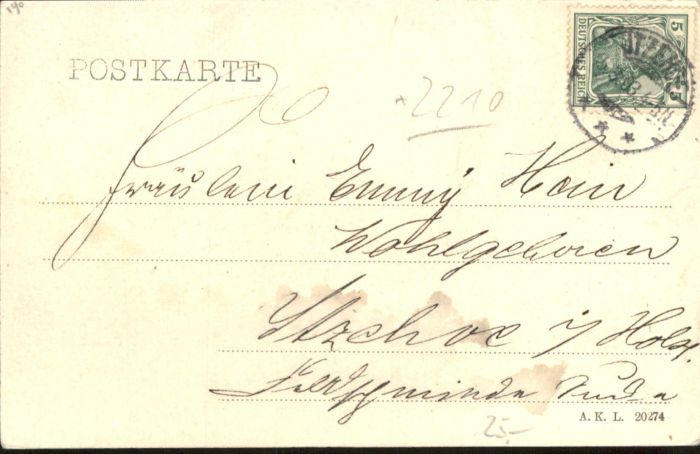 190
POSTKARTE
5
DEUTSCHES REICH
2210
Fräulein Emmy Hein
Wohlgeboren
Itzehoe i/ Holst.
A. K. L. 20274
25,-